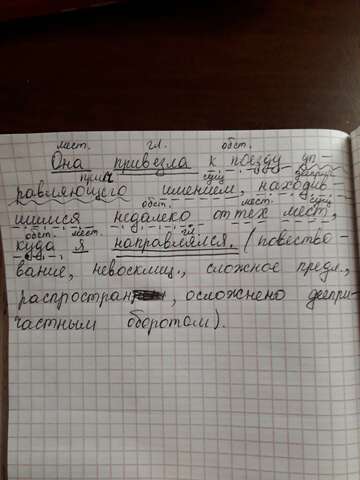 мест. гл. обст.
Она привезла к поезду уп-
прич. сущ.
равляющего имением, находив-
обст. мест. сущ.
шимся недалеко от тех мест,
обст. мест. гл.
куда я направлялся. (повество-
вание, невосклиц., сложное предл.,
распростран , осложнено деепри-
частным оборотом).